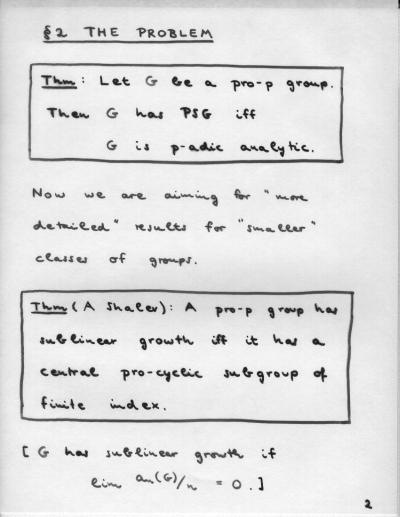 §2 THE PROBLEM
Thm: Let G be a pro-p group.
Then G has PSG iff
G is p-adic analytic.
Now we are aiming for "more
detailed" results for "smaller"
classes of groups.
Thm (A Shalev): A pro-p group has
sublinear growth iff it has a
central pro-cyclic subgroup of
finite index.
[ G has sublinear growth if
lim an(G)/n = 0. ]
2